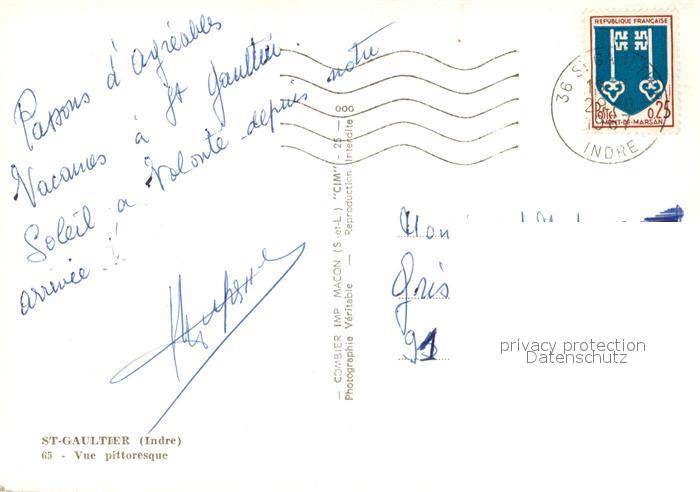 Passons d'agréables
Vacances à St Gaultier.
Soleil a Volonté depuis notre
arrivée !
ST-GAULTIER (Indre)
65 - Vue pittoresque
— COMBIER IMP. MACON (S.-et-L.) "CIM" — 25 — 000
Photographie Véritable — Reproduction Interdite
REPUBLIQUE FRANÇAISE
POSTES 0,25
MONT-DE-MARSAN
36
INDRE
Gris
privacy protection
Datenschutz